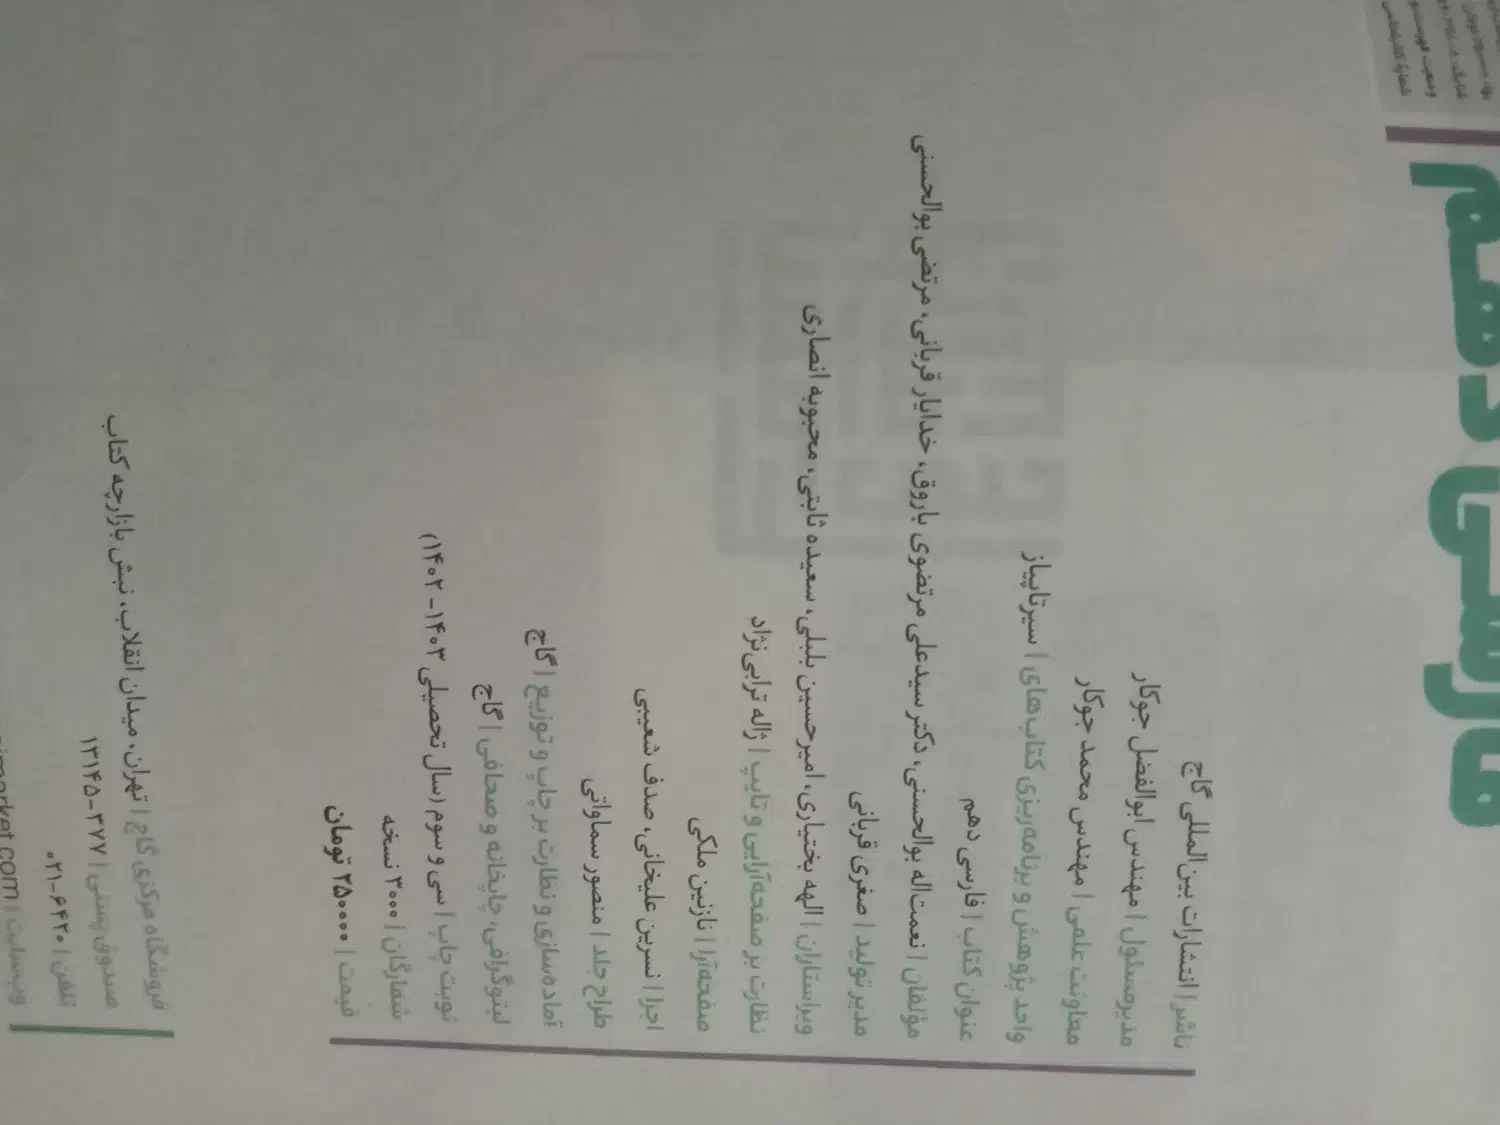 فارسی دهم
ناشر | انتشارات بین‌المللی گاج
مدیرمسئول | مهندس ابوالفضل جوکار
معاونت علمی | مهندس محمد جوکار
واحد پژوهش و برنامه‌ریزی کتاب‌های | سیرتاپیاز
عنوان کتاب | فارسی دهم
مؤلفان | نعمت‌اله بوالحسنی، دکتر سیدعلی مرتضوی باروق، خدایار قربانی، مرتضی بوالحسنی
مدیر تولید | صغری قربانی
ویراستاران | الهه بختیاری، امیرحسین بلبلی، سعیده ثابتی، محبوبه انصاری
نظارت بر صفحه‌آرایی و تایپ | ژاله ترابی‌نژاد
صفحه‌آرا | نازنین ملکی
اجرا | نسرین علیخانی، صدف شعیبی
طراح جلد | منصور سماواتی
آماده‌سازی و نظارت بر چاپ و توزیع | گاج
لیتوگرافی، چاپخانه و صحافی | گاج
نوبت چاپ | سی و سوم (سال تحصیلی ۱۴۰۳-۱۴۰۲)
شمارگان | ۳۰۰۰ نسخه
قیمت | ۲۵۰۰۰۰ تومان
فروشگاه مرکزی گاج | تهران، میدان انقلاب، نبش بازارچه کتاب
صندوق پستی | ۳۷۷-۱۳۱۴۵
تلفن | ۶۴۲۰-۰۲۱
وب‌سایت | market.com